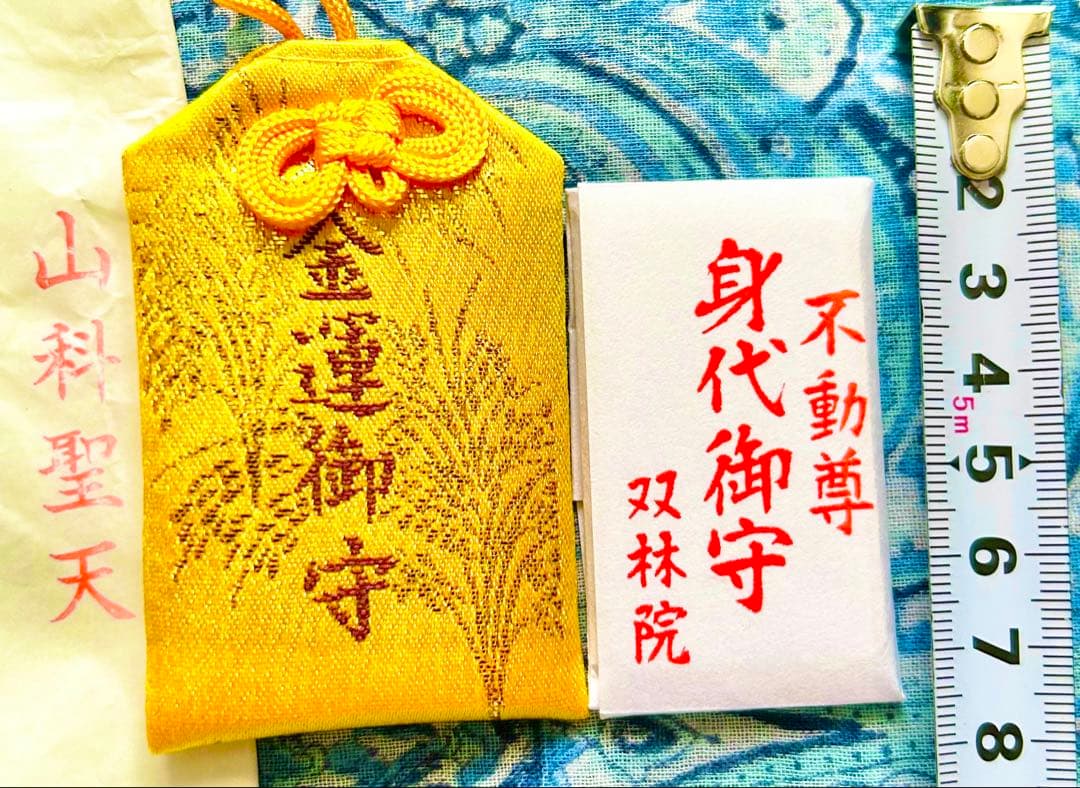 山科聖天
金運御守
不動尊
身代御守
双林院
2
3
4
5m
5
6
7
8